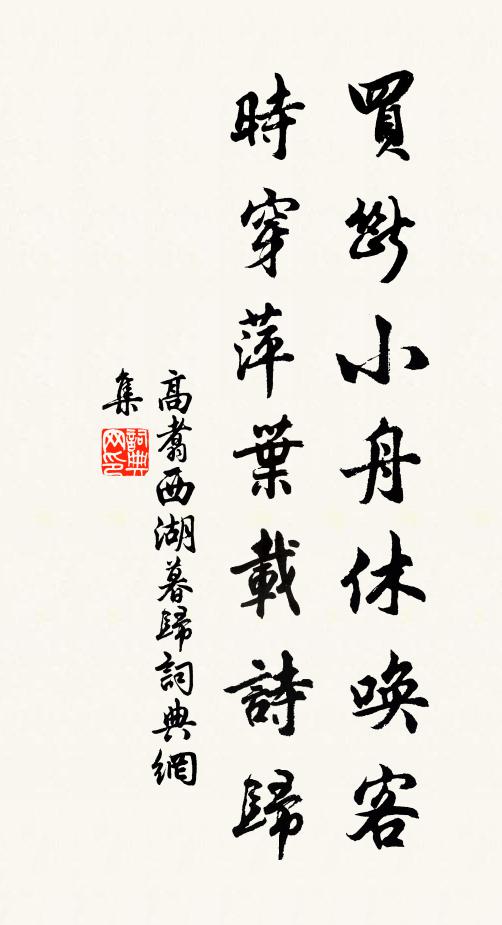 買斷小舟休喚客
時穿萍葉載詩歸
高翥西湖暮歸詞典網
集
詞典
网印